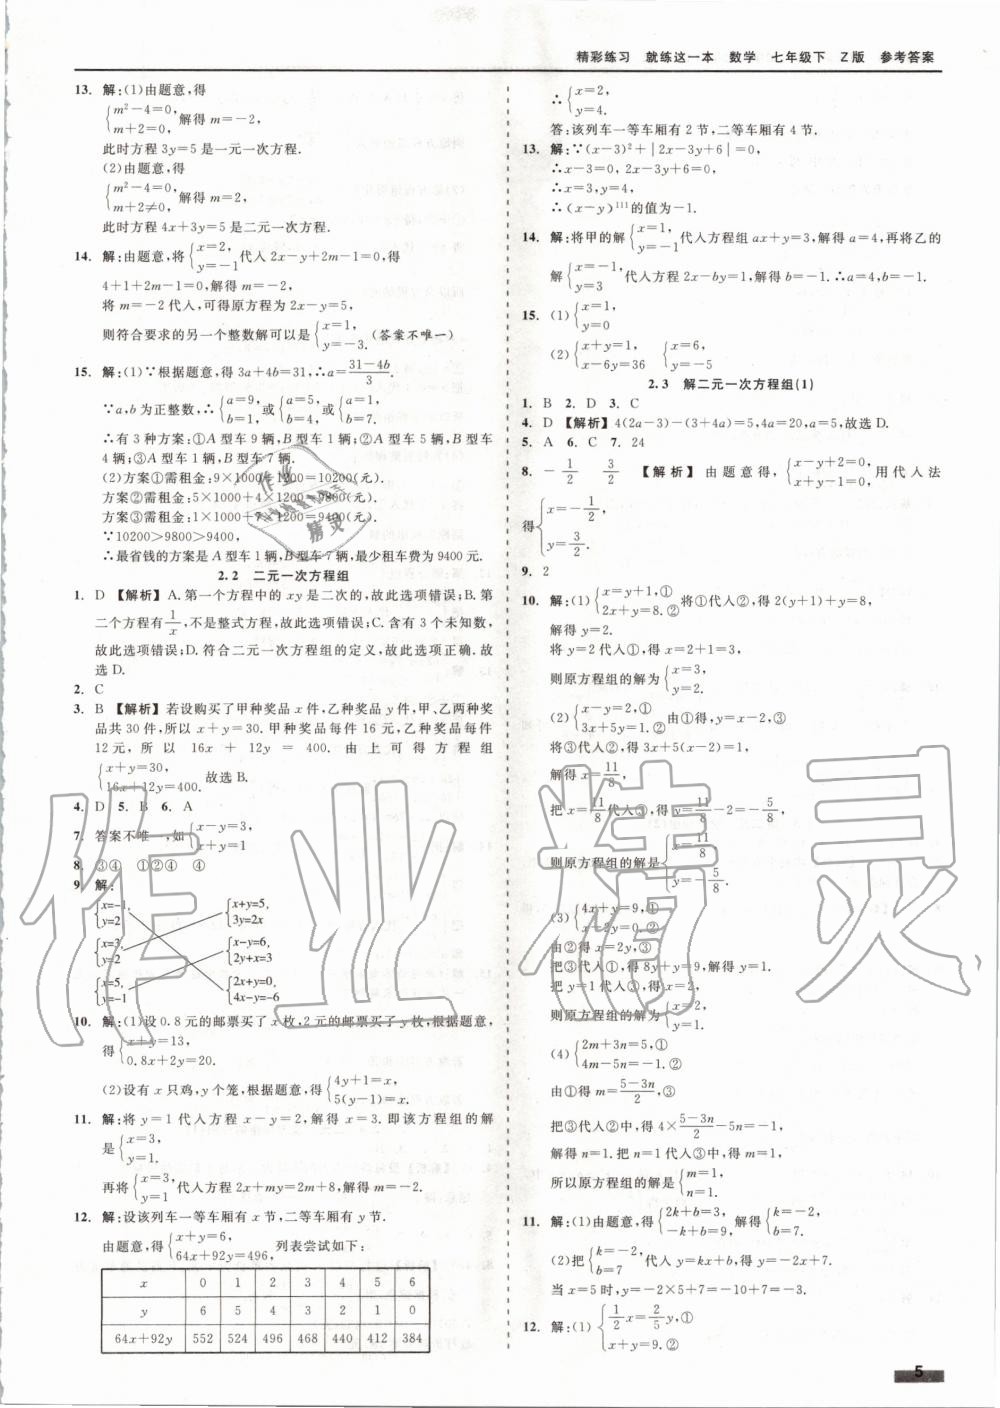 精彩练习 就练这一本 数学 七年级下 Z版 参考答案
13. 解:(1)由题意,得
{m²-4=0, m+2=0, 解得 m=-2,
此时方程 3y=5 是一元一次方程.
(2)由题意,得
{m²-4=0, m+2≠0, 解得 m=2,
此时方程 4x+3y=5 是二元一次方程.
14. 解:由题意,将{x=2, y=-1 代入 2x-y+2m-1=0,得
4+1+2m-1=0,解得 m=-2,
将 m=-2 代入,可得原方程为 2x-y=5,
则符合要求的另一个整数解可以是{x=1, y=-3. (答案不唯一)
15. 解:(1)∵根据题意,得 3a+4b=31,∴a=(31-4b)/3.
∵a,b 为正整数,∴{a=9, b=1, 或{a=5, b=4, 或{a=1, b=7.
∴有 3 种方案:①A 型车 9 辆,B 型车 1 辆;②A 型车 5 辆,B 型车
4 辆;③A 型车 1 辆,B 型车 7 辆.
(2)方案①需租金:9×1000+1200=10200(元).
方案②需租金:5×1000+4×1200=9800(元).
方案③需租金:1×1000+7×1200=9400(元).
∵10200>9800>9400,
∴最省钱的方案是 A 型车 1 辆,B 型车 7 辆,最少租车费为 9400 元.
2.2 二元一次方程组
1. D 【解析】A.第一个方程中的 xy 是二次的,故此选项错误;B.第
二个方程有1/x,不是整式方程,故此选项错误;C.含有 3 个未知数,
故此选项错误;D.符合二元一次方程组的定义,故此选项正确.故
选 D.
2. C
3. B 【解析】若设购买了甲种奖品 x 件,乙种奖品 y 件,甲、乙两种奖
品共 30 件,所以 x+y=30.甲种奖品每件 16 元,乙种奖品每件
12 元,所以 16x+12y=400.由上可得方程组
{x+y=30, 16x+12y=400. 故选 B.
4. D 5. B 6. A
7. 答案不唯一,如{x-y=3, x+y=1
8. ③④ ①②④ ④
9 解:
{x=-1, y=2 {x+y=5, 3y=2x
{x=3, y=2 {x-y=6, 2y+x=3
{x=5, y=-1 {2x+y=0, 4x-y=-6
10. 解:(1)设 0.8 元的邮票买了 x 枚,2 元的邮票买了 y 枚,根据题意,
得{x+y=13, 0.8x+2y=20.
(2)设有 x 只鸡,y 个笼,根据题意,得{4y+1=x, 5(y-1)=x.
11. 解:将 y=1 代入方程 x-y=2,解得 x=3.即该方程组的解
是{x=3, y=1.
再将{x=3, y=1 代入方程 2x+my=2m+8,解得 m=-2.
12. 解:设该列车一等车厢有 x 节,二等车厢有 y 节.
由题意,得{x+y=6, 64x+92y=496. 列表尝试如下:
x 0 1 2 3 4 5 6
y 6 5 4 3 2 1 0
64x+92y 552 524 496 468 440 412 384
∴{x=2, y=4.
答:该列车一等车厢有 2 节,二等车厢有 4 节.
13. 解:∵(x-3)²+|2x-3y+6|=0,
∴x-3=0, 2x-3y+6=0,
∴x=3,y=4,
∴(x-y)¹¹¹的值为-1.
14. 解:将甲的解{x=1, y=-1 代入方程组 ax+y=3,解得 a=4,再将乙的
解{x=-1, y=3 代入方程 2x-by=1,解得 b=-1.∴a=4,b=-1.
15. (1){x=1, y=0
(2){x+y=1, x-6y=36 {x=6, y=-5
2.3 解二元一次方程组(1)
1. B 2. D 3. C
4. D 【解析】4(2a-3)-(3+4a)=5,4a=20,a=5,故选 D.
5. A 6. C 7. 24
8. -1/2 3/2 【解析】由题意得,{x-y+2=0, x+y-1=0, 用代入法
得{x=-1/2, y=3/2.
9. 2
10. 解:(1){x=y+1,① 2x+y=8.② 将①代入②,得 2(y+1)+y=8,
解得 y=2.
将 y=2 代入①,得 x=2+1=3,
则原方程组的解为{x=3, y=2.
(2){x-y=2,① 3x+5y=1.② 由①得,y=x-2,③
将③代入②,得 3x+5(x-2)=1,
解得 x=11/8,
把 x=11/8代入③,得 y=11/8-2=-5/8,
则原方程组的解是{x=11/8, y=-5/8.
(3){4x+y=9,① x-2y=0.②
由②得 x=2y,③
把③代入①,得 8y+y=9,解得 y=1.
把 y=1 代入③,得 x=2,
则原方程组的解为{x=2, y=1.
(4){2m+3n=5,① 4m-5n=-1.②
由①得 m=(5-3n)/2,③
把③代入②中,得 4×(5-3n)/2-5n=-1,
解得 n=1.把 n=1 代入③中,得 m=1,
所以原方程组的解是{m=1, n=1.
11. 解:(1)由题意,得{2k+b=3, -k+b=9, 解得{k=-2, b=7.
(2)把{k=-2, b=7 代入 y=kx+b,得 y=-2x+7,
当 x=5 时,y=-2×5+7=-10+7=-3.
12. 解:(1){1/2x=2/5y,① x+y=9.②
5
作业精灵